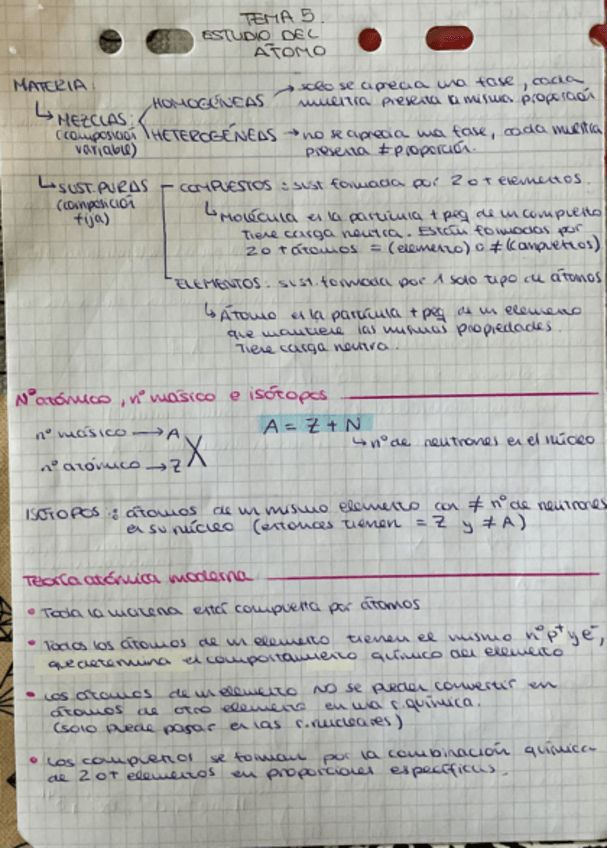 TEMA 5.
ESTUDIO DEL
ÁTOMO
MATERIA:
↳ MEZCLAS: (composición variable)
HOMOGÉNEAS → solo se aprecia una fase, cada
muestra presenta la misma proporción
HETEROGÉNEAS → no se aprecia una fase, cada muestra
presenta ≠ proporción.
↳ SUST. PURAS (composición fija)
COMPUESTOS: sust formada por 2 o + elementos.
↳ Molécula es la partícula + peq de un compuesto
Tiene carga neutra. Están formadas por
2 o + átomos = (elemento) o ≠ (compuestos)
ELEMENTOS: sust. formada por 1 solo tipo de átomos
↳ Átomo es la partícula + peq de un elemento
que mantiene las mismas propiedades.
Tiene carga neutra.
Nº atómico, nº másico e isótopos
nº másico → A
nº atómico → Z
X
A = Z + N
↳ nº de neutrones en el núcleo
ISÓTOPOS: átomos de un mismo elemento con ≠ nº de neutrones
en su núcleo (entonces tienen = Z y ≠ A)
Teoría atómica moderna
• Toda la materia está compuesta por átomos
• Todos los átomos de un elemento tienen el mismo nº p⁺ y e⁻,
que determina el comportamiento químico del elemento
• Los átomos de un elemento NO se pueden convertir en
átomos de otro elemento en una r. química.
(solo puede pasar en las r. nucleares)
• Los compuestos se forman por la combinación química
de 2 o + elementos en proporciones específicas.